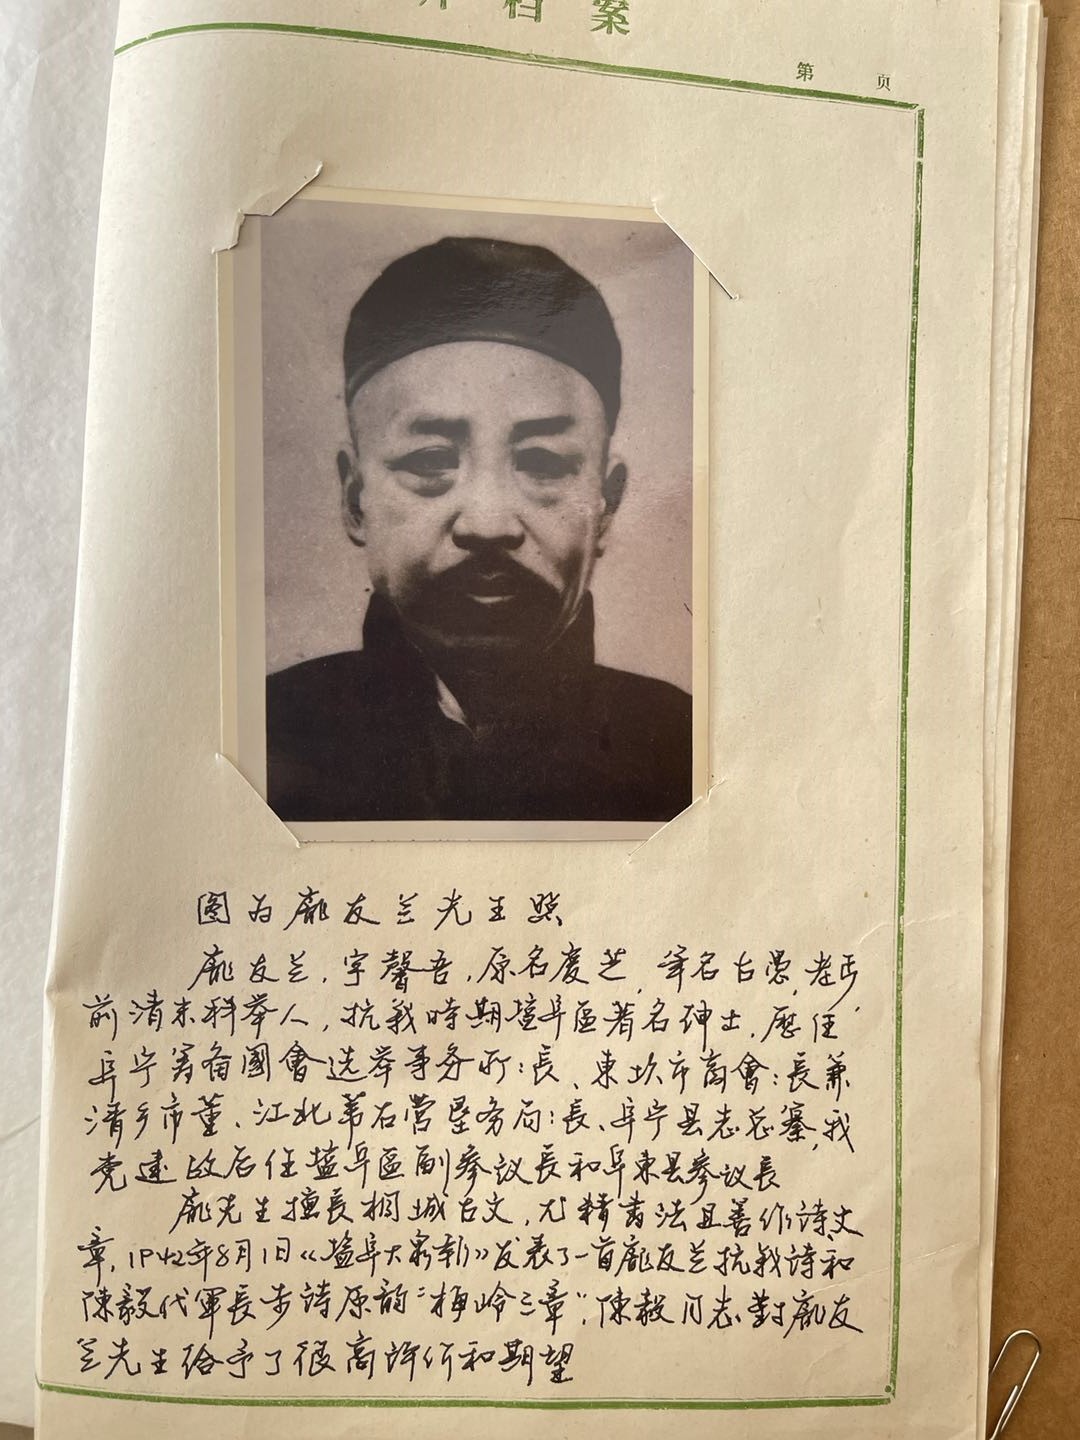 片档案
第 页
图为庞友兰先生照
庞友兰，字馨吾，原名庆芝，笔名古愚，老丐
前清末科举人，抗战时期盐阜区著名绅士，歷任
阜宁筹备國會选举事务所：長、東坎市商會：長兼
清乡市董、江北苇右营垦务局：長、阜宁县志总纂，我
党建政后任盐阜區副参议長和阜東县参议長
庞先生擅長桐城古文，尤精書法且善作詩文
章，1942年8月1日《盐阜大众報》发表了一首庞友兰抗战诗和
陳毅代軍長步詩原韵“梅岭三章”，陳毅同志對庞友
兰先生给予了很高評价和期望